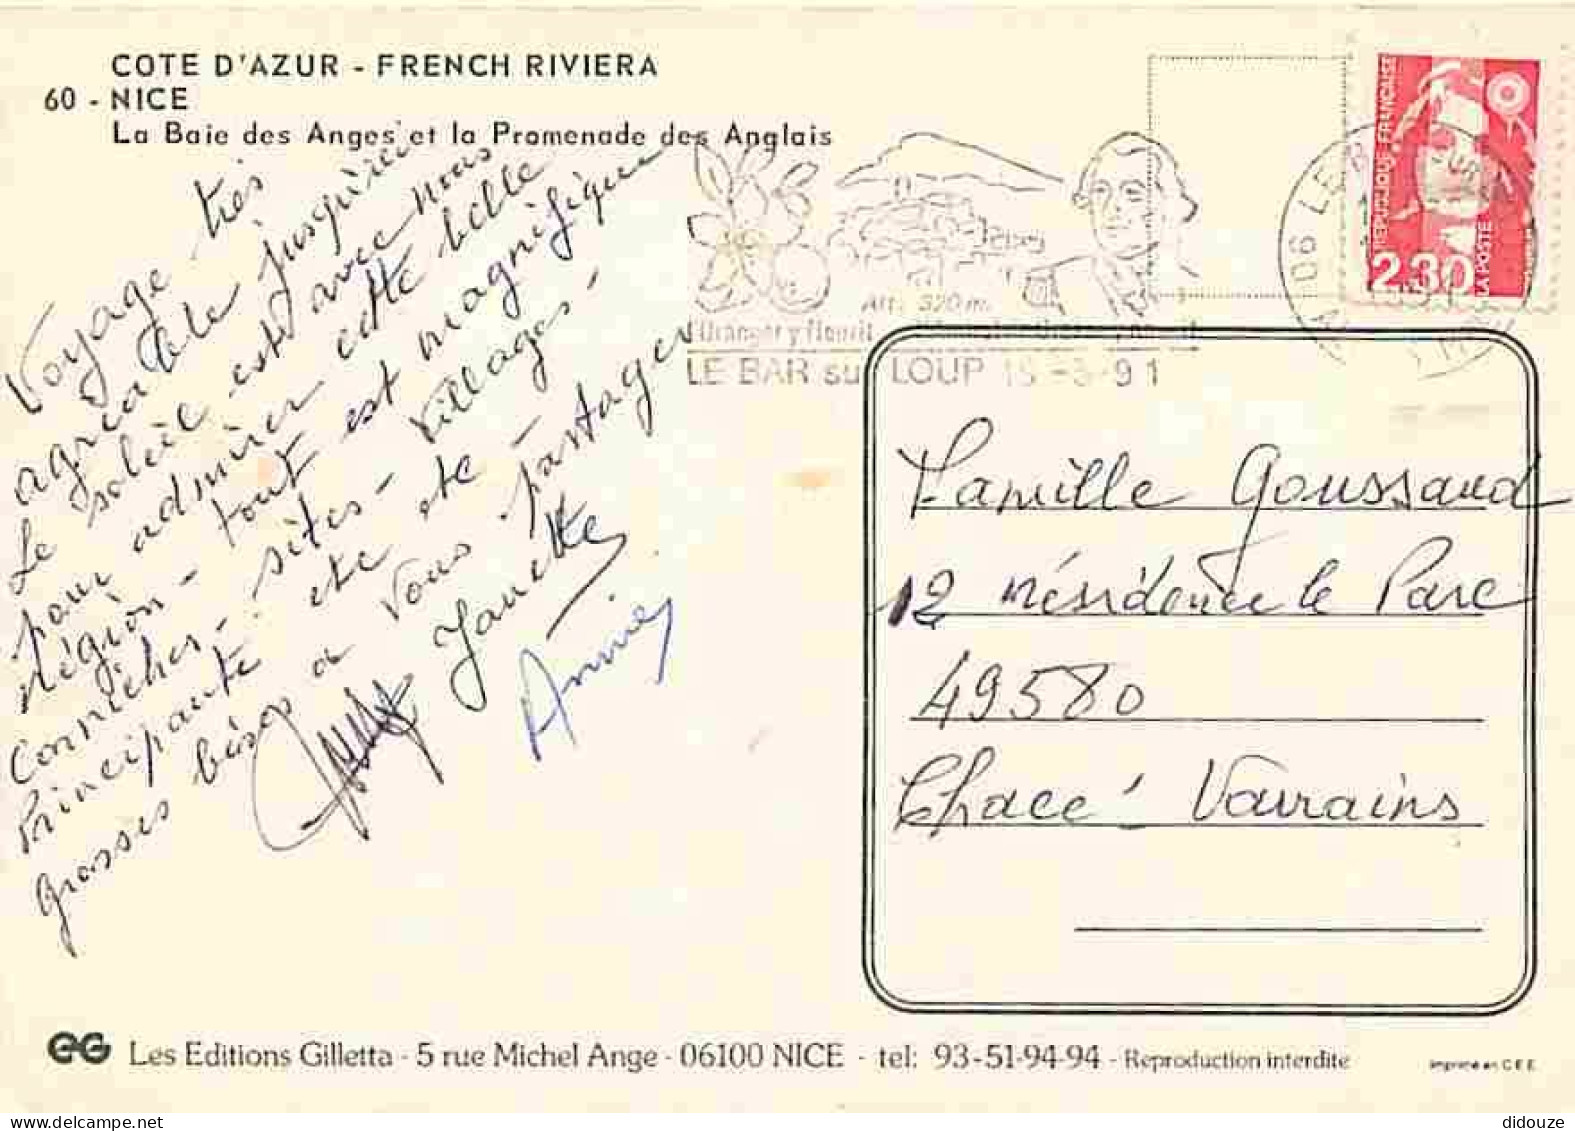 COTE D'AZUR - FRENCH RIVIERA
60 - NICE
La Baie des Anges et la Promenade des Anglais
Voyage très
agréable jusqu'ici
Le soleil est avec nous
pour admirer cette belle
région - tout est magnifique
Corniches - sites - Villages -
Principauté etc etc -
grosses bises a vous partager
Janette
Annie
Alt. 320 m.
l'Oranger y fleurit
LE BAR sur LOUP 15-3-91
06 LE B
REPUBLIQUE FRANCAISE
2,30
LA POSTE
Famille Goussaud
12 résidence le Parc
49580
Chacé Varrains
EG Les Editions Gilletta - 5 rue Michel Ange - 06100 NICE - tel: 93-51-94-94 - Reproduction interdite
Imprimé en C.E.E.
didouze